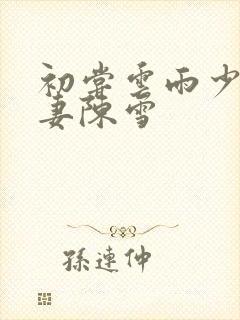 初嘗雲雨少
妻陳雪
孫連仲